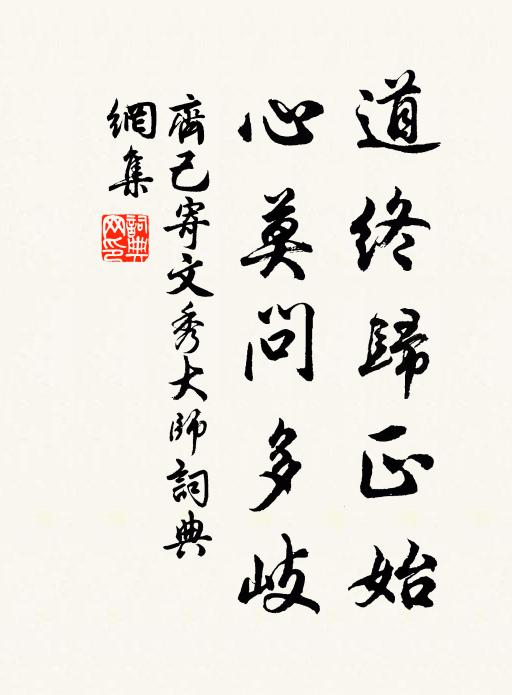 道終歸正始
心莫問多岐
齊己寄文秀大師詞典
網集
詞典
网印